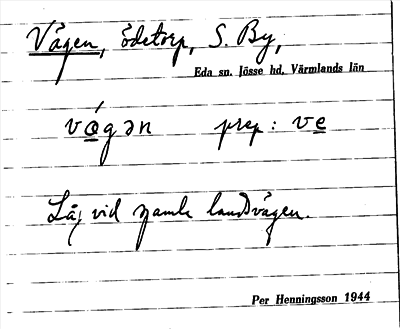 Vägen, ödetorp, S. By,
Eda sn. Jösse hd. Värmlands län
vǻgən prep: ve
Låg vid gamla landsvägen.
Per Henningsson 1944